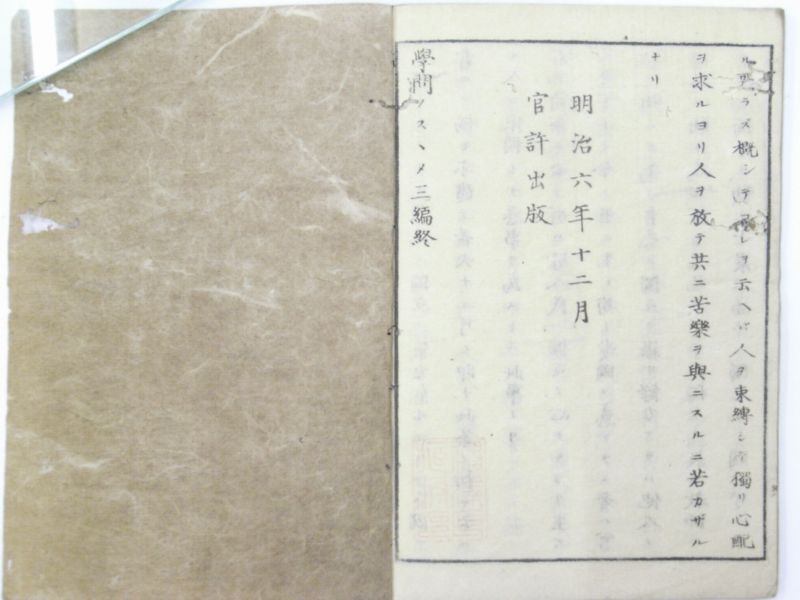 ル可ラズ概シテ之レヲ云ヘバ人ヲ束縛シテ獨リ心配
ヲ求ルヨリ人ヲ放テ共ニ苦樂ヲ與ニスルニ若カザル
ナリ
明治六年十二月
官許出版
學問ノスヽメ三編終